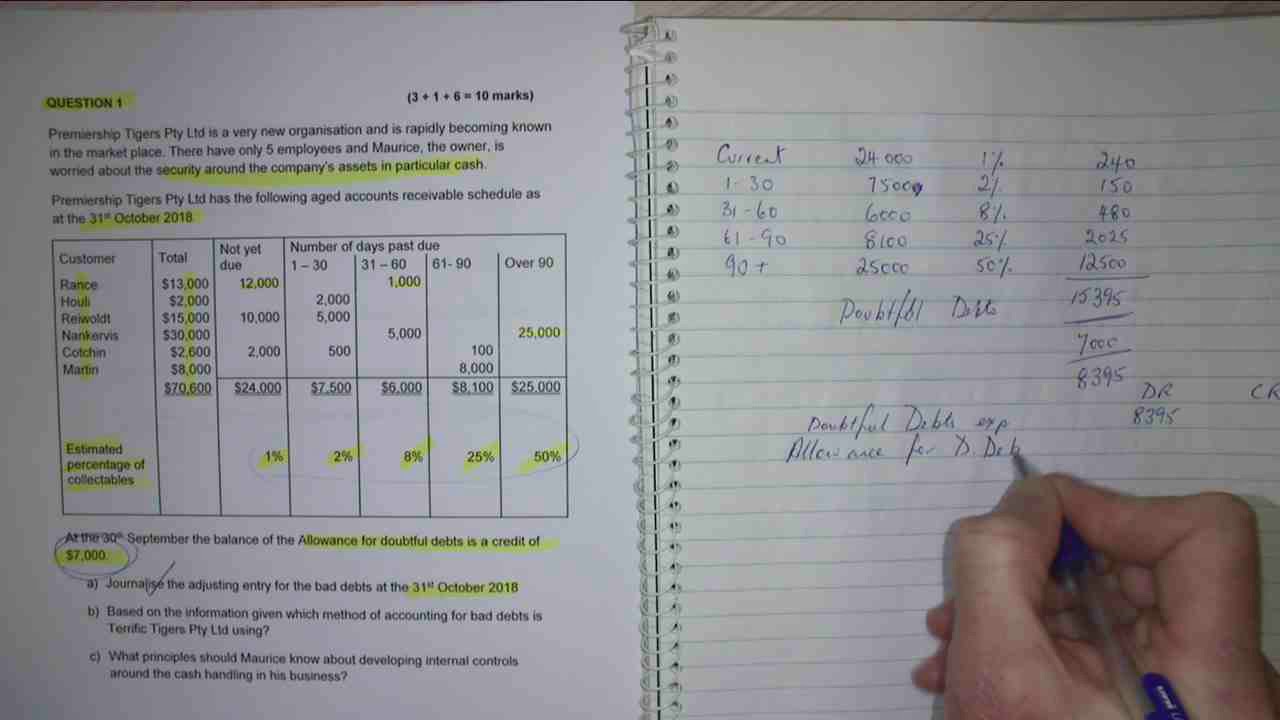 QUESTION 1 (3 + 1 + 6 = 10 marks)
Premiership Tigers Pty Ltd is a very new organisation and is rapidly becoming known
in the market place. There have only 5 employees and Maurice, the owner, is
worried about the security around the company's assets in particular cash.
Premiership Tigers Pty Ltd has the following aged accounts receivable schedule as
at the 31st October 2018
Customer Total Not yet due Number of days past due
1 – 30 31 – 60 61- 90 Over 90
Rance $13,000 12,000 1,000
Houli $2,000 2,000
Reiwoldt $15,000 10,000 5,000
Nankervis $30,000 5,000 25,000
Cotchin $2,600 2,000 500 100
Martin $8,000 8,000
$70,600 $24,000 $7,500 $6,000 $8,100 $25,000
Estimated
percentage of 1% 2% 8% 25% 50%
collectables
At the 30th September the balance of the Allowance for doubtful debts is a credit of
$7,000.
a) Journalise the adjusting entry for the bad debts at the 31st October 2018
b) Based on the information given which method of accounting for bad debts is
Terrific Tigers Pty Ltd using?
c) What principles should Maurice know about developing internal controls
around the cash handling in his business?
Current 24 000 1% 240
1-30 7500 2% 150
31-60 6000 8% 480
61-90 8100 25% 2025
90+ 25000 50% 12500
Doubtful Debts 15395
7000
8395
DR CR
Doubtful Debts exp 8395
Allowance for D. Deb